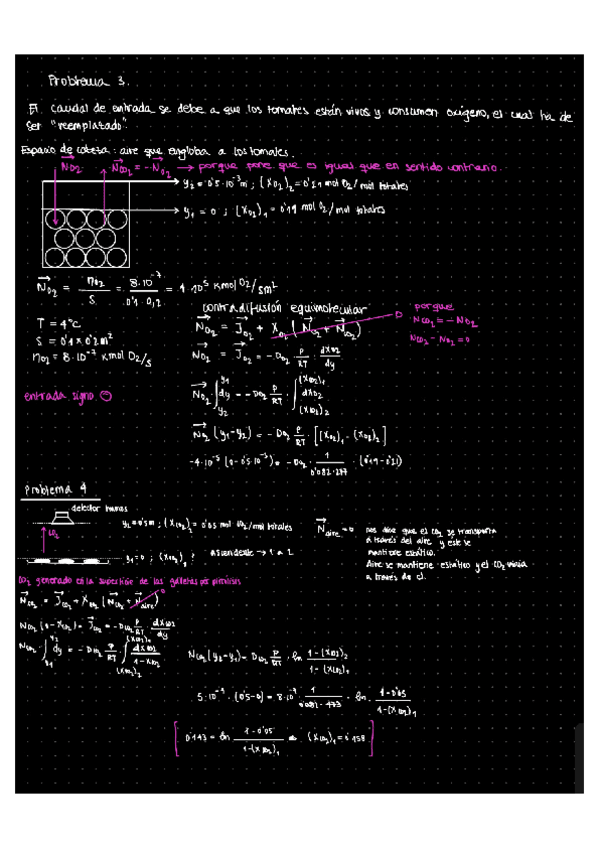 Problema 3.
El caudal de entrada se debe a que los tomates están vivos y consumen oxígeno, el cual ha de
ser "reemplazado".
Espacio de cabeza: aire que engloba a los tomates.
N⃗O2 N⃗CO2 = -N⃗O2 → porque pone que es igual que en sentido contrario.
y2 = 0'5·10^-3 m ; (XO2)2 = 0'21 mol O2/mol totales
y1 = 0 ; (XO2)1 = 0'19 mol O2/mol totales
N⃗O2 = nO2/S = 8·10^-7/0'1·0,2 = 4·10^5 Kmol O2/sm²
contradifusión equimolecular
T = 4°C
S = 0'1 x 0'2 m²
nO2 = 8·10^-7 Kmol O2/s
N⃗O2 = J⃗O2 + XO2 (N⃗O2 + N⃗CO2)
porque
NCO2 = -NO2
NCO2 - NO2 = 0
N⃗O2 = J⃗O2 = -DO2 P/RT · dXO2/dy
entrada signo ⊖
N⃗O2 ∫ y1 y2 dy = -DO2 P/RT · ∫ (XO2)1 (XO2)2 dXO2
N⃗O2 (y1-y2) = -DO2 P/RT · [(XO2)1 - (XO2)2]
-4·10^-5 (0-0'5·10^-3) = -DO2 · 1/0'082·277 · (0'19-0'21)
Problema 4
detector humos
y2 = 0'5m ; (XCO2)2 = 0'05 mol CO2/mol totales
CO2
y1 = 0 ; (XCO2)1 ?
ascendente → 1 a 2
N⃗aire = 0 nos dice que el CO2 se transporta
a través del aire y este se
mantiene estático.
Aire se mantiene estático y el CO2
a través de él.
CO2 generado en la superficie de las galletas por pirólisis
N⃗CO2 = J⃗CO2 + XCO2 (N⃗CO2 + N⃗aire) 0
NCO2 (1-XCO2) = J⃗CO2 = -DCO2 P/RT · dXCO2/dy
NCO2 · ∫ y2 y1 dy = -DCO2 P/RT ∫ (XCO2)1 (XCO2)2 dXCO2/1-XCO2
NCO2 (y2-y1) = DCO2 P/RT · ln 1-(XCO2)2/1-(XCO2)1
5·10^-9 · (0'5-0) = 8·10^-9 · 1/0'082·473 · ln 1-0'05/1-(XCO2)1
[0'143 = ln 1-0'05/1-(XCO2)1 (XCO2)1 = 0'158]